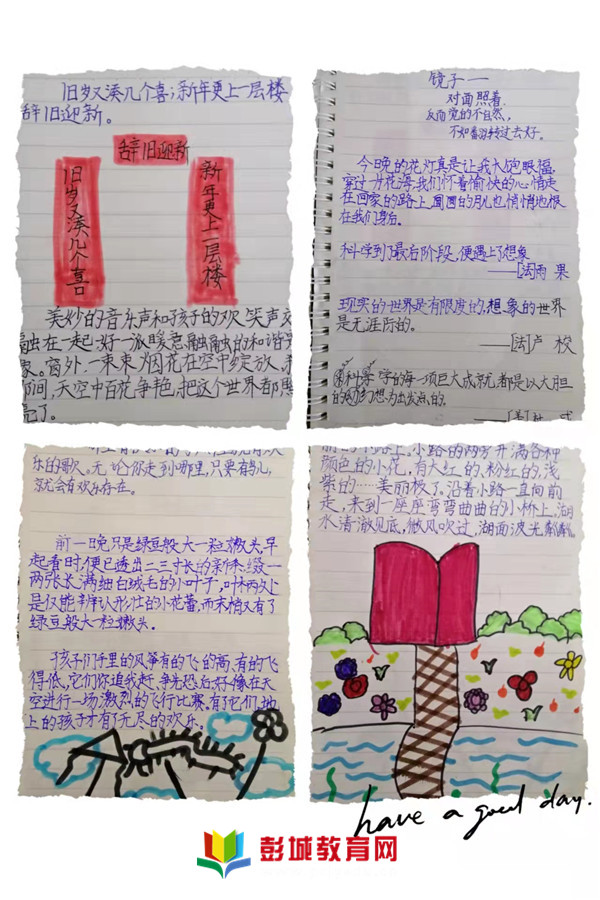 旧岁又凑几个喜;新年更上一层楼
辞旧迎新。
辞旧迎新
旧岁又凑几个喜
新年更上一层楼
美妙的音乐声和孩子的欢笑声交
融在一起,好一派暖意融融的和谐景
象。窗外,一束束烟花在空中绽放,
间,天空中百花争艳,把这个世界都照
亮了。
镜子一
对面照着,
反而觉的不自然,
不如翻转过去好。
今晚的花灯真是让我大饱眼福,
穿过廾花海,我们怀着愉快的心情走
在回家的路上,圆圆的月儿也悄悄地跟
在我们身后。
科学到了最后阶段,便遇上了想象
——[法]雨 果
现实的世界是有限度的,想象的世界
是无涯际的。
——[法]卢 梭
科学的每一项巨大成就,都是以大胆
的幻想为出发点的,
乐的歌。无论你走到哪里,只要有鸟儿,
就会有欢乐存在。
前一晚只是绿豆般大一粒嫩头,早
起看时,便已透出二三寸长的新条,缀一
两张长满细白绒毛的小叶子,叶柄处
是仅能辨认形状的小花蕾,而末梢又有了
绿豆般大一粒嫩头。
孩子们手里的风筝有的飞的高,有的飞
得低,它们你追我赶,争先恐后,好像在天
空进行一场激烈的飞行比赛,有了它们,地
上的孩子才有了无尽的欢乐。
小路上,小路的两旁开满各种
颜色的小花,有大红的、粉红的,浅
紫的……美丽极了。沿着小路一直向前
走,来到一座座弯弯曲曲的小桥上,湖
水清澈见底,微风吹过,湖面波光粼粼。
have a good day.
彭城教育网